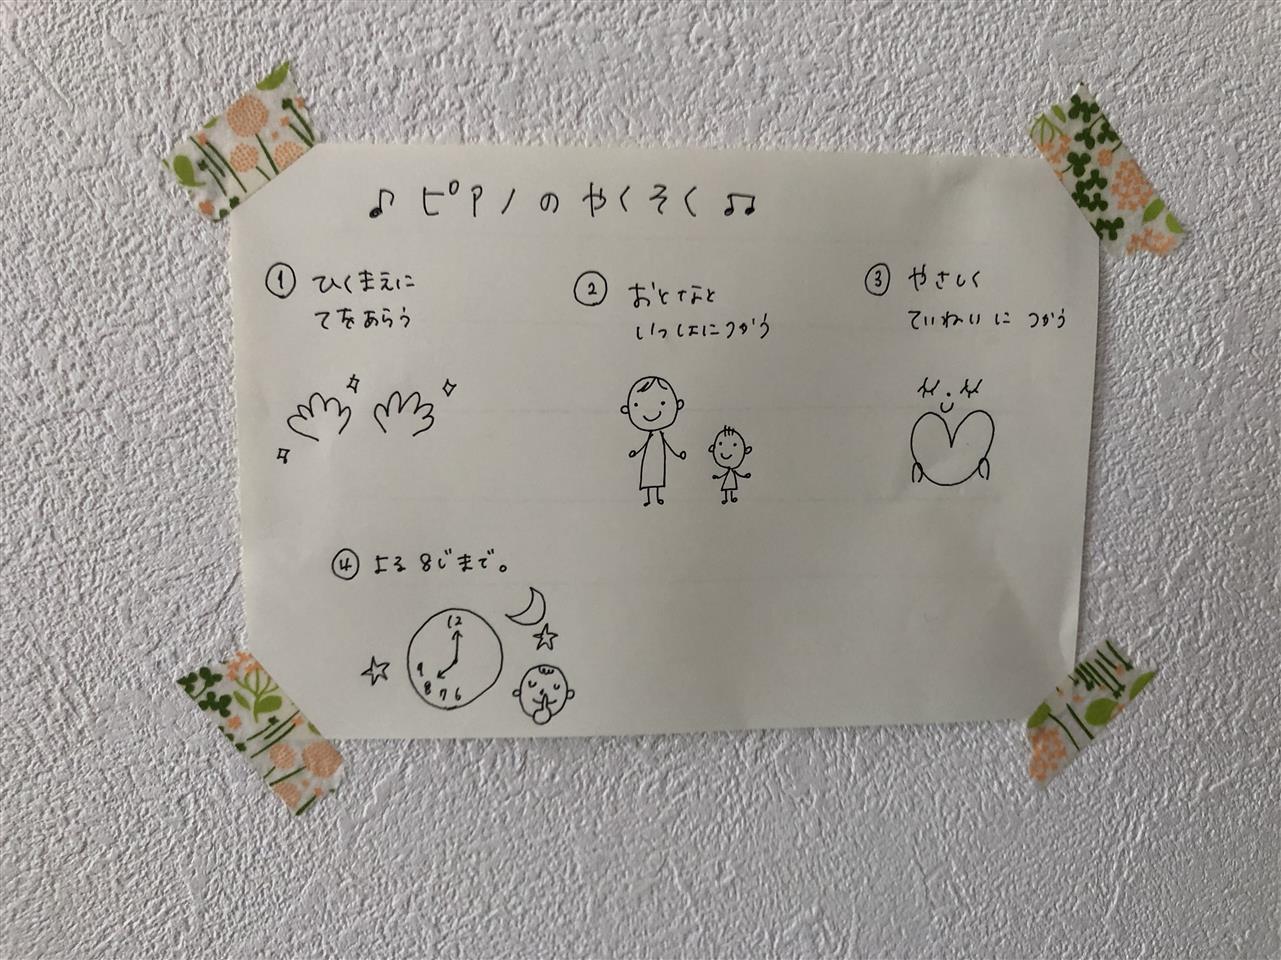 ♪ ピアノのやくそく ♫
① ひくまえに
てをあらう
② おとなと
いっしょにつかう
③ やさしく
ていねいに つかう
④ よる 8じまで。
12
9
8 7 6